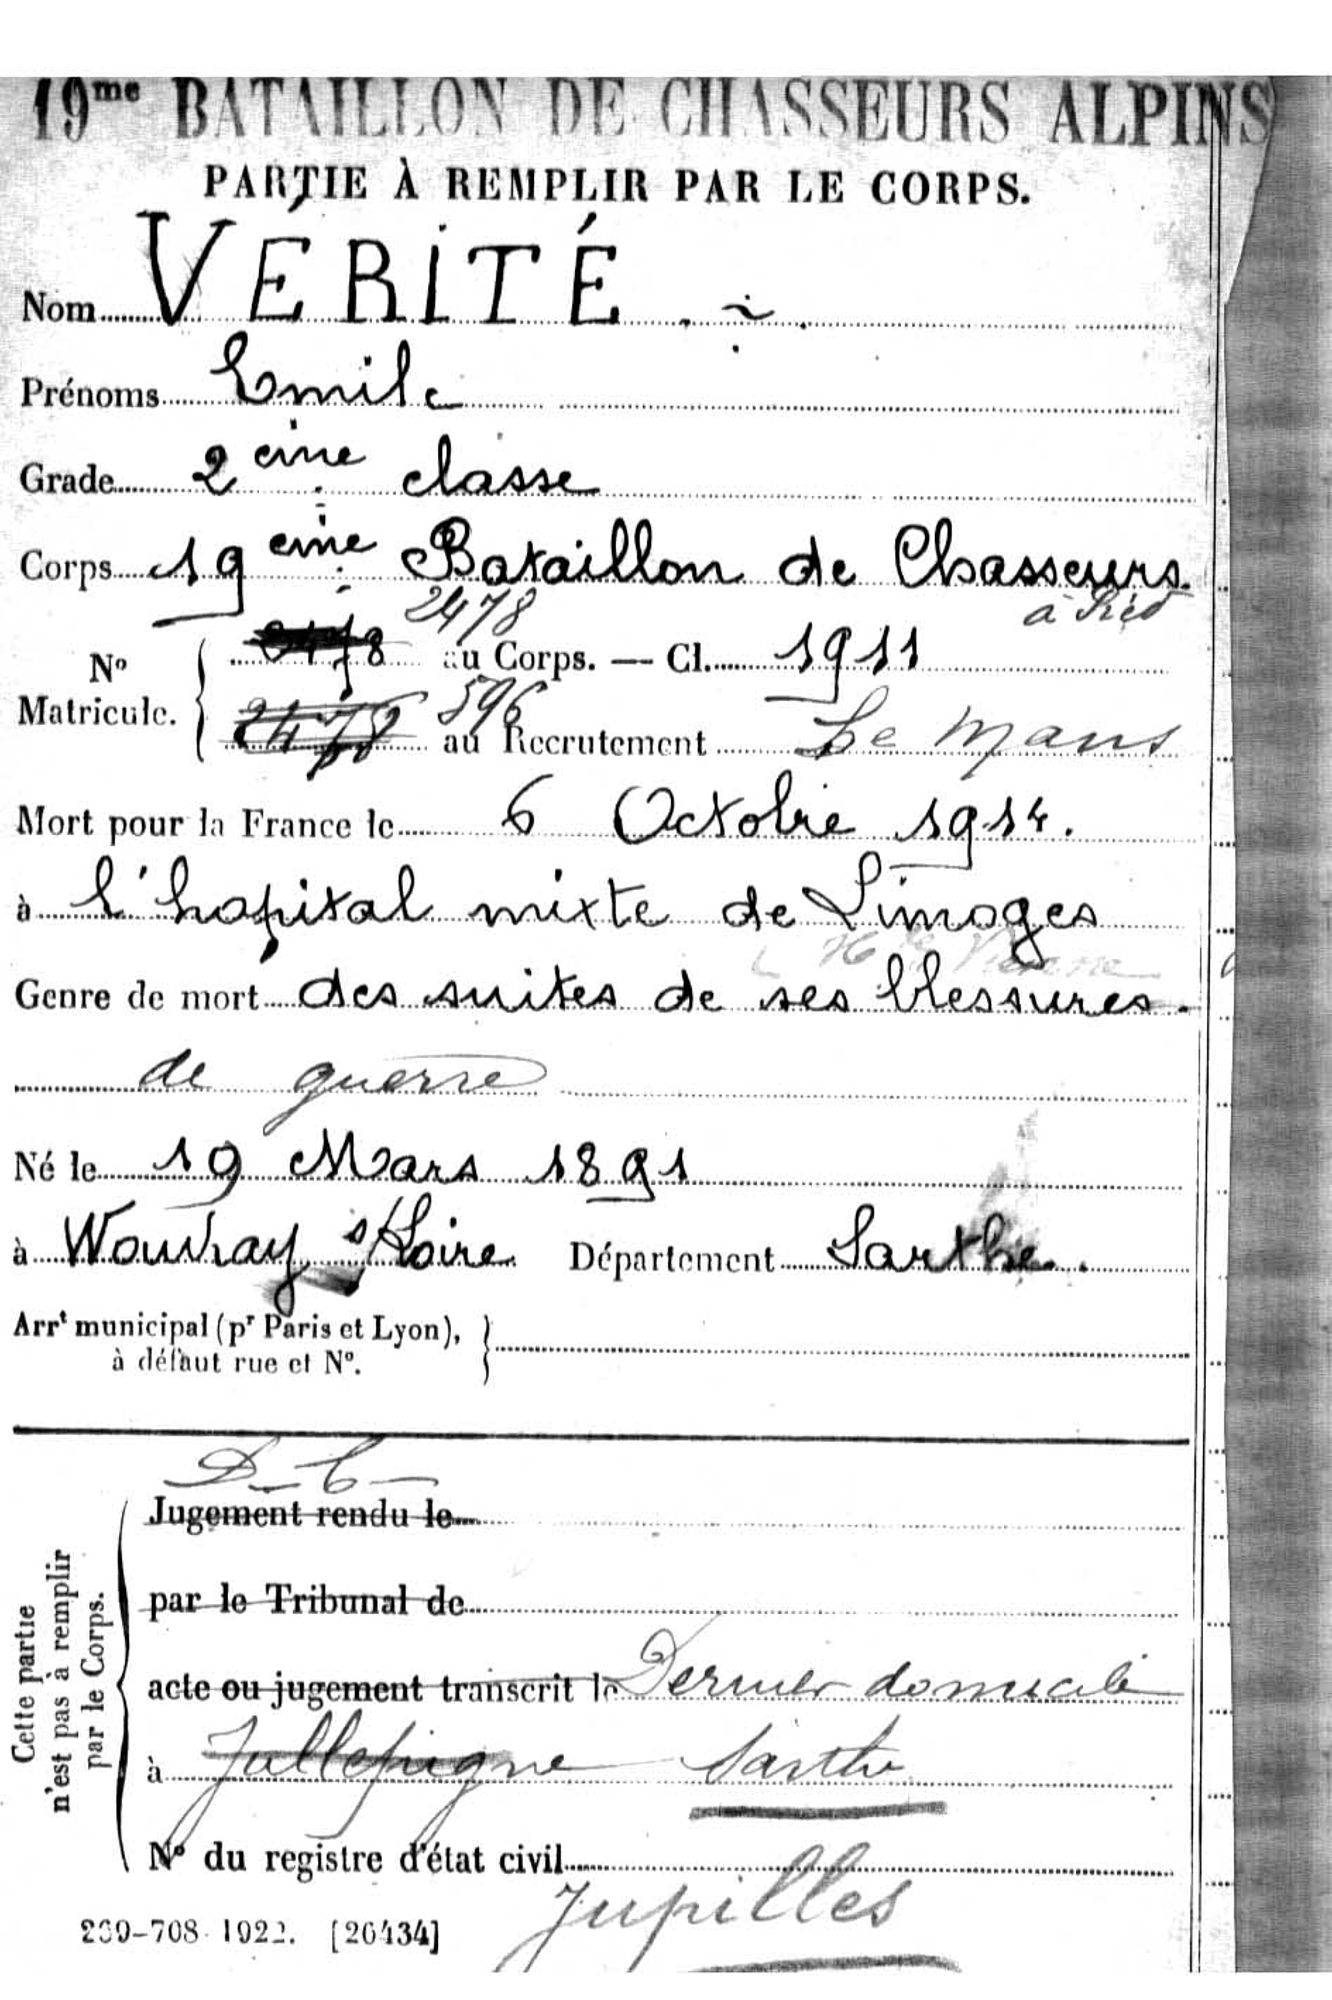 19me BATAILLON DE CHASSEURS ALPINS
PARTIE À REMPLIR PAR LE CORPS.
Nom VERITÉ
Prénoms Emile
Grade 2eme classe
Corps 19eme Bataillon de Chasseurs
à Pied
2478
No Matricule. 2478 au Corps. — Cl. 1911
596
2478 au Recrutement Le Mans
Mort pour la France le 6 Octobre 1914.
à l'hopital mixte de Limoges
Hte Vienne
Genre de mort des suites de ses blessures.
de guerre
Né le 19 Mars 1891
à Wouvray s/Loire Département Sarthe.
Arrt municipal (pr Paris et Lyon),
à défaut rue et No.
D_C_
Cette partie
n'est pas à remplir
par le Corps.
Jugement rendu le
par le Tribunal de
acte ou jugement transcrit le Dernier domicile
à Sarthe
No du registre d'état civil
Jupilles
239-708-1922. [26434]